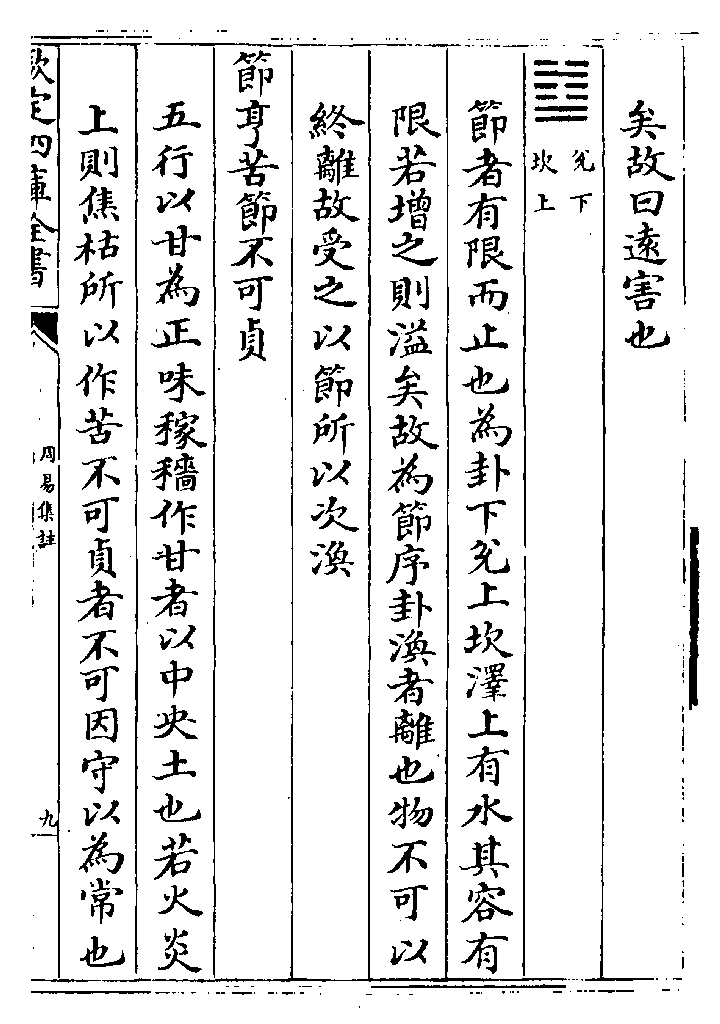 矣故曰遠害也
䷻兊下坎上
節者有限而止也為卦下兊上坎澤上有水其容有
限若增之則溢矣故為節序卦渙者離也物不可以
終離故受之以節所以次渙
節亨苦節不可貞
五行以甘為正味稼穡作甘者以中央土也若火炎
上則焦枯所以作苦不可貞者不可因守以為常也
欽定四庫全書
周易集註
九